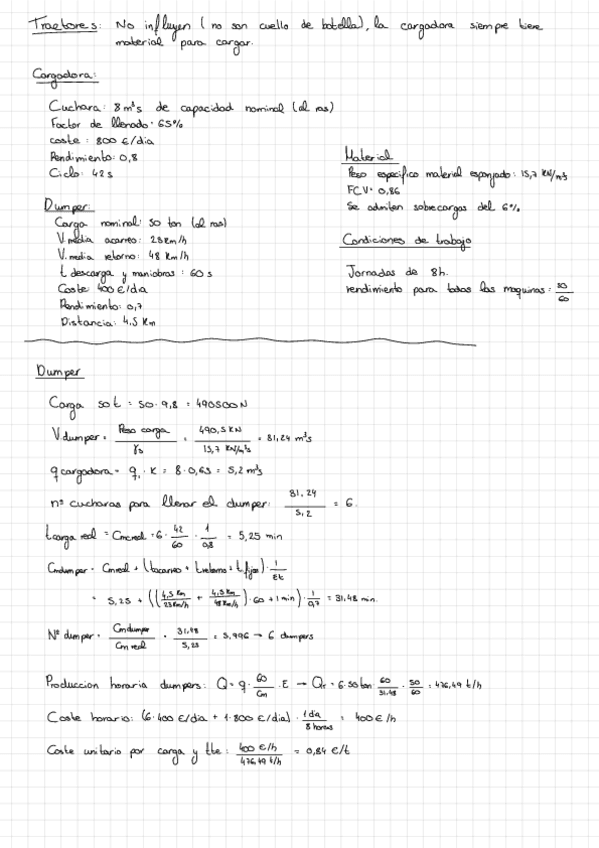 Tractores: No influyen (no son cuello de botella), la cargadora siempre tiene
material para cargar.
Cargadora:
Cuchara: 8 m³s de capacidad nominal (al ras)
Factor de llenado: 65%
coste: 800 €/dia
Rendimiento: 0,8
Ciclo: 42 s
Material
Peso especifico material esponjado: 15,7 KN/m³
FCV: 0,86
Se admiten sobrecargas del 6%
Dumper:
Carga nominal: 50 ton (al ras)
V media acarreo: 23 km/h
V. media retorno: 48 Km/h
t descarga y maniobras: 60 s
Coste: 400 €/dia
Rendimiento: 0,7
Distancia: 4,5 Km
Condiciones de trabajo
Jornadas de 8h.
rendimiento para todas las maquinas: 50/60
Dumper
Carga 50 t = 50 · 9,8 = 490500 N
V dumper = Peso carga / γs = 490,5 KN / 15,7 KN/m³s = 31,24 m³s
q cargadora = q₁ · K = 8 · 0,65 = 5,2 m³s
nº cucharas para llenar el dumper: 31,24 / 5,2 = 6.
t carga real = Cm real = 6 · 42/60 · 1/0,8 = 5,25 min
Cm dumper = Cm real + (t acarreo + t retorno + t fijo) · 1/Et
= 5,25 + ((4,5 Km / 23 Km/h + 4,5 Km / 48 Km/h) · 60 + 1 min) · 1/0,7 = 31,48 min.
Nº dumper = Cm dumper / Cm real = 31,48 / 5,25 = 5,996 → 6 dumpers
Produccion horaria dumpers: Q = q · 60/Cm · E → Qt = 6 · 50 ton · 60/31,48 · 50/60 = 476,49 t/h
Coste horario: (6 · 400 €/dia + 1 · 800 €/dia) · 1 dia / 8 horas = 400 €/h
Coste unitario por carga y tte: 400 €/h / 476,49 t/h = 0,84 €/t